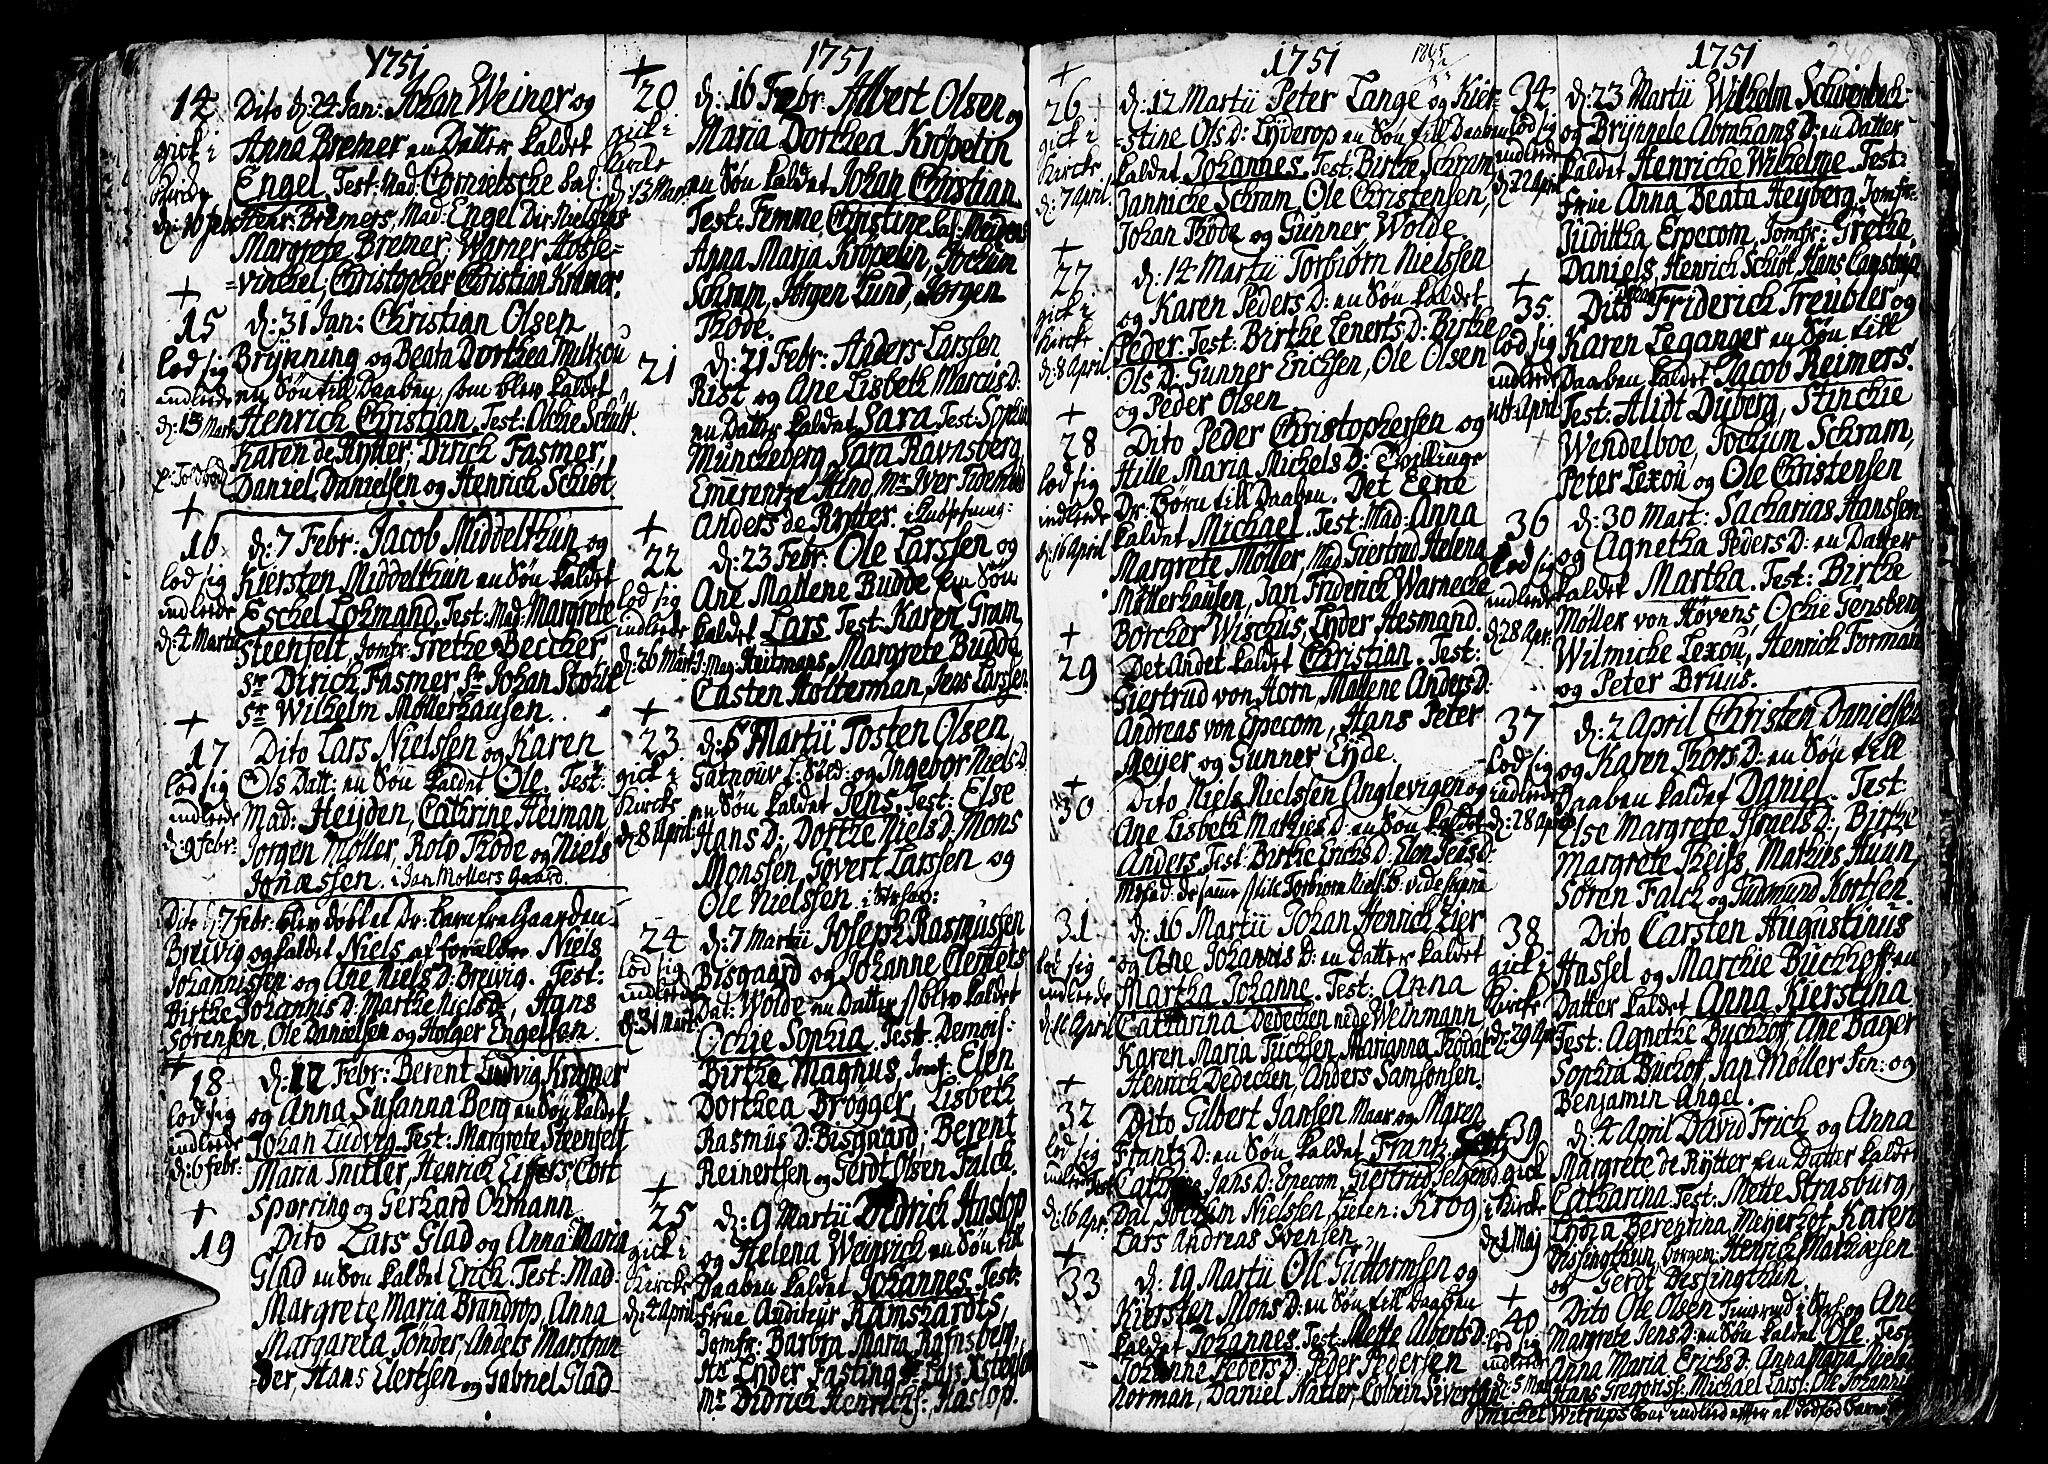 1751
14
gick i
Kircke
d: 10 feb
Dito d: 24 Jan: Johan Weiner og
Anna Bremer en Datter kaldet
Engel. Test: Mad: Cornielsche Sal:
Bremers, Mad: Engel Dir. Nielsens
Margrete Bremer, Warner Hosse-
=vinckel, Christopher Christian Kremer.
+
15
lod sig
indleede
d: 13 Mart
d: 31 Jan: Christian Olsen
Brÿnning og Beata Dorthea Miltzou
en Søn till Daaben, som blev kaldet
Henrich Christian. Test: Ochie Schult
Karen de Rÿtter, Dirich Fasmer,
Daniel Danielsen og Henrich Schiøt.
+
16
lod sig
indleede
d: 4 Martii
d: 7 Febr: Jacob Middelthun og
Kiersten Middelthun en Søn kaldet
Eschel Lohmand. Test: Mad: Margrete
Steenfelt, Jomfr: Grethe Beccker
Sr Dirich Fasmer Sr Johan Stoltz
Sr Wilhelm Møllerhausen.
+
17
lod sig
indleede
d: 9 febr:
Dito Lars Nielssen og Karen
Ols Datt: en Søn kaldet Ole. Test:
Mad: Heÿden, Cathrine Heiman,
Jørgen Møller, Rolv Thode og Niels
Jonæssen. i Jan Møllers Gaard.
Dito d: 7 febr: blev døbt et Dr: barn fra Gaarden
Breivig og kaldet Niels af forældre Niels
Johannissen og Ane Niels D: Breivig. Test:
Birthe Johannis D: Marthe Niels D, Hans
Sørensen, Ole Danielsen og Holger Engelsen.
+
18
lod sig
indleede
d: 6 febr:
d: 12 Febr: Berent Ludvig Kremer
og Anna Susanna Berg en Søn kaldet
Johan Ludvig. Test: Margrete Steenfelt
Maria Snitler, Henrich Eiffers, Cort
Spørring og Gerhard Ohmann
+
19
Dito Lars Glad og Anna Maria
Glad en Søn kaldet Erich. Test: Mad
Margrete Maria Brandrop, Anna
Margareta Tonder, Anders Marstran
=der, Hans Elertsen og Gabriel Glad
1751
+
20
gick i
Kircke
d: 13 Mart
d: 16 Febr: Albert Olsen og
Maria Dorthea Krøpelin
en Søn kaldet Johan Christian
Test: Femme, Christine Sal:
Anna Maria Krøpelin, Jochum
Schram, Jørgen Lund, Jørgen
Thode.
21
d: 21 Febr: Anders Larssen
Rist og Ane Lisbeth Marcus D:
en Datter kaldet Sara. Test: Sophia
Münckeberg, Sara Ravnsberg,
Emerentze Hind, Mr Iver
Anders de Rÿtter.
+
22
lod sig
indleede
d: 26 Mart
d: 23 Febr: Ole Larssen og
Ane Mallene Budde en Søn
kaldet Lars Test: Karen Gram,
J: Mag: Heitmans Margrete Budde
Casten Holterman, Jens Larssen.
+
23
gick i
Kircke
d: 8 April
d: 5 Martii Tosten Olsen
Garnouv: Sold: og Ingebor Niels D:
en Søn kaldet Jens. Test: Else
Hans D: Dorthe Niels D: Mons
Monsen, Govert Larssen og
Ole Nielssen.
24
lod sig
indleede
d: 31 Mart
d: 7 Martii Joseph Rasmussen
Bisgaard og Johanne Clemets
Dat: Wolde en Datter blev kaldet
Ochie Sophia. Test: Demois:
Birthe Magnus, Jomf: Elen
Dorthea Brøgger, Lisbeth
Rasmus D: Bisgaard, Berent
Reinertsen og Gerdt Olsen Falck.
+
25
gick i
Kircke
d: 4 April
d: 9 Martii Didrich Haslop
og Helena Weinrich en Søn till
Daaben kaldet Johannes. Test:
Frue Auditeur Ramshardts,
Jomfr: Barbra Maria Rafnsberg,
Hr Lÿder Fasting
Mr Didrich Henrichs:, Haslop.
1751
+
26
gick i
Kircke
d: 7 April
d: 12 Martii Peter Lange og Kier=
=stine Ols D: Lÿderop en Søn till Daaben
kaldet Johannes. Test: Birthe Schram,
Jannicke Schram, Ole Christensen,
Johan Thode og Gunner Wolde.
+
27
gick i
Kircke
d: 8 April
d: 14 Martii Torbiørn Nielssen
og Karen Peders D: en Søn kaldet
Peder. Test: Birthe Lenerts D: Birthe
Ols D: Gunner Erichsen, Ole Olsen
og Peder Olsen
+
28
lod sig
indleede
d: 16 April
Dito Peder Christophersen og
Hille Maria Michels D: Tvillinge
Dr: Børn till Daaben. Det Eene
kaldet Michael. Test: Mad: Anna
Margrete Møller, Mad Giertrud Helena
Møllerhausen, Jan Friderich Warnecke
Borcher Wischus, Lÿder Hesmand.
+
29
Det Andet kaldet Christian. Test:
Giertrud von Horn, Mallene Anders D:
Andreas von Erpecom, Hans Peter
Meÿer og Gunner Eÿde.
+
30
Dito Niels Nielssen Anglevigen og
Ane Lisbeth Mathies D: en Søn kaldet
Anders. Test: Birthe Erichs D: Elen Jens D:
31
lod sig
indleede
d: 16 April
d: 16 Martii Johan Henrich Eier
og Ane Johannis D: en Datter kaldet
Martha Johanne. Test: Anna
Catharina Dedechen née Weinmann,
Karen Maria Tuchsen, Marianna Thodal
Henrich Dedechen, Anders Samsonsen.
+
32
lod sig
indleede
d: 16 Apr:
Dito Gilbert Jansen Maar og Maren
Frantz D: en Søn kaldet Frantz.
Jans D: Erpecom, Giertrud
Dal, Jochum Nielssen, Krog
Lars Andreas Svensen.
+
33
d: 19 Martii Ole Guttormsen og
Kiersten Mons D: en Søn till Daaben
kaldet Johannes. Test: Mette Alberts D:
Johanne Peders D: Peder Pedersen
Norman, Daniel Hatler, Colbein Sivertsen
1751
34
lod sig
indleede
d: 22 April
d: 23 Martii Wilhelm Schirenbeck
og Brÿnnele Abrahams D: en Datter
kaldet Henriche Wilhelme. Test:
Frue Anna Beata Heÿberg, Jomfr:
Judittha Erpecom, Jomfr: Grethe
Daniels, Henrich Schiøt, Hans
+
35
lod sig
indleede
ult: April
Dito Friderich Treubler og
Karen Leganger en Søn till
Daaben kaldet Jacob Reimers.
Test: Alidt Dÿberg, Stinchie
Wendelboe, Jochum Schram,
Peter Lexou og Ole Christensen
36
lod sig
indleede
d: 28 Apr:
d: 30 Mart: Sacharias Hanssen
og Agnetha Peders D: en Datter
kaldet Martha. Test: Birthe
Møller von Hovens Ochie Jensberg,
Wilmiche Lexou, Henrich Forman
og Peter Bruus.
37
lod sig
indleede
d: 28 Apr
d: 2 April Christen Danielsen
og Karen Thors D: en Søn till
Daaben kaldet Daniel. Test:
Else Margrete Israels D:, Birthe
Margrete Theiss, Mathies Huun,
Søren Falck og Gudmund Kortsen.
38
gick i
Kircke
d: 29 Apr
Dito Carsten Augustinus
Hassel og Marchie Buchhoff en
Datter kaldet Anna Kierstina
Test: Agnethe Buchhof, Ane Bager
Sophia Buchof, Jan Møller Sen: og
Benjamin Angel.
39
gick
i Kircke
d: 1 Maj
d: 4 April David Frick og Anna
Margrete de Rÿtter en Datter kaldet
Catharina. Test: Mette Strasburg,
Lÿdia Berentina Meÿerhof, Karen
Dessingthun, Henrich Mathæsen
og Gerdt Dessingthun
+
40
lod sig
indleede
d: 5 Maj
Dito Ole Olsen og Ane
Margrete Jens D: en Søn kaldet Ole. Test
Anna Maria Erichs D: Anna Maria Niels
Hans Gregoriss: Michael Larss: Ole Johannis
Michel Witrups Kone indled efter et